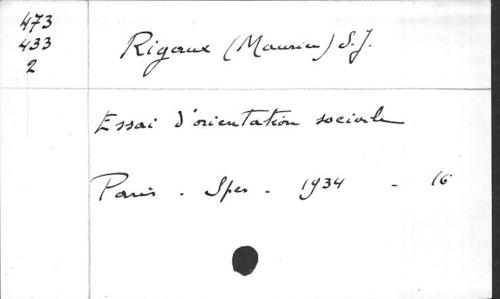 473
433
2
Rigaux (Maurice) S.J.
Essai d'orientation sociale
Paris - Spes - 1934 - 16